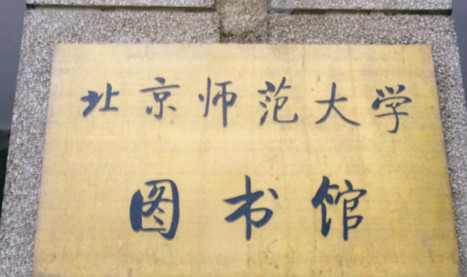 北京师范大学
图书馆